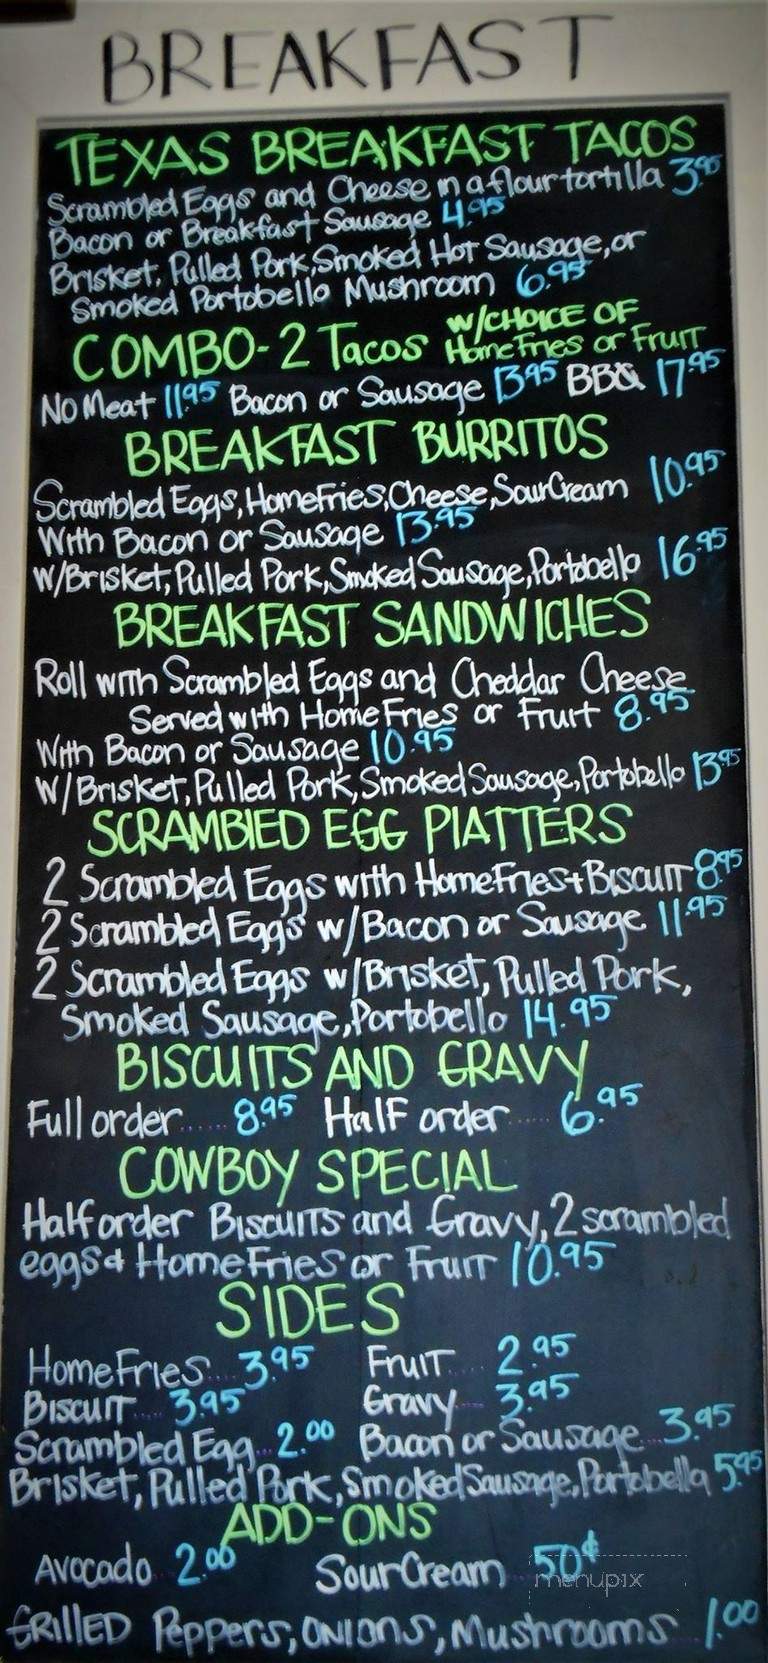 BREAKFAST
TEXAS BREAKFAST TACOS
Scrambled Eggs and Cheese in a flour tortilla 3.95
Bacon or Breakfast Sausage 4.95
Brisket, Pulled Pork, Smoked Hot Sausage, or
Smoked Portobello Mushroom 6.95
COMBO-2 Tacos w/CHOICE OF
Home Fries or Fruit
No Meat 11.95 Bacon or Sausage 13.95 BBQ 17.95
BREAKFAST BURRITOS
Scrambled Eggs, Home Fries, Cheese, Sour Cream 10.95
With Bacon or Sausage 13.95
w/Brisket, Pulled Pork, Smoked Sausage, Portobello 16.95
BREAKFAST SANDWICHES
Roll with Scrambled Eggs and Cheddar Cheese
Served with Home Fries or Fruit 8.95
With Bacon or Sausage 10.95
w/Brisket, Pulled Pork, Smoked Sausage, Portobello 13.95
SCRAMBLED EGG PLATTERS
2 Scrambled Eggs with Home Fries + Biscuit 8.95
2 Scrambled Eggs w/Bacon or Sausage 11.95
2 Scrambled Eggs w/Brisket, Pulled Pork,
Smoked Sausage, Portobello 14.95
BISCUITS AND GRAVY
Full order..... 8.95 Half order..... 6.95
COWBOY SPECIAL
Half order Biscuits and Gravy, 2 scrambled
eggs + Home Fries or Fruit 10.95
SIDES
Home Fries... 3.95 Fruit... 2.95
Biscuit.... 3.95 Gravy... 3.95
Scrambled Egg... 2.00 Bacon or Sausage... 3.95
Brisket, Pulled Pork, Smoked Sausage, Portobella 5.95
ADD-ONS
Avocado 2.00 Sour Cream 50¢
menupix
GRILLED Peppers, Onions, Mushrooms... 1.00